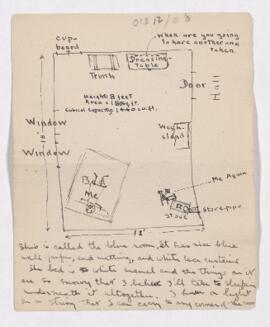 Oct 12/08
When are you going
to have another one
taken.
Cup-
board
Trunk
Dressing
Table
Door
Height 8 feet
Area =
Cubical Capacity, 1440 cu. ft.
Window
Window
Wash
stand
Bed
Me
Me Again
Stove-pipe
Stove
12'
This is called the blue room, it has nice blue
wall-paper, and matting, and white lace curtains
The bed is white enamel and the things on it
are so snowy that I believe I'll take to sleeping
underneath it altogether. I have a light
on a string that I can carry to any corner of the room